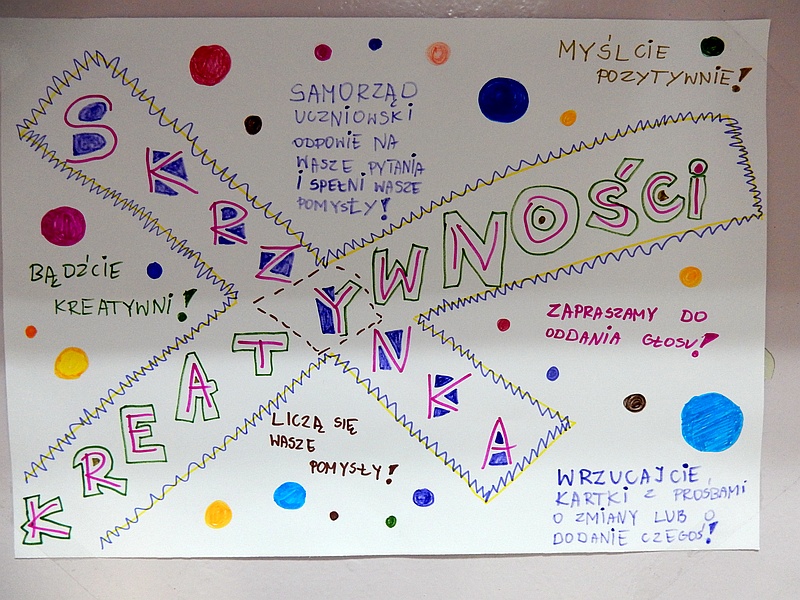 MYŚLCIE
POZYTYWNIE!
SAMORZĄD
UCZNIOWSKI
ODPOWIE NA
WASZE PYTANIA
I SPEŁNI WASZE
POMYSŁY!
SKRZYNKA
KREATYWNOŚCI
BĄDŹCIE
KREATYWNI!
ZAPRASZAMY DO
ODDANIA GŁOSU!
LICZĄ SIĘ
WASZE
POMYSŁY!
WRZUCAJCIE
KARTKI Z PROŚBAMI
O ZMIANY LUB O
DODANIE CZEGOŚ!